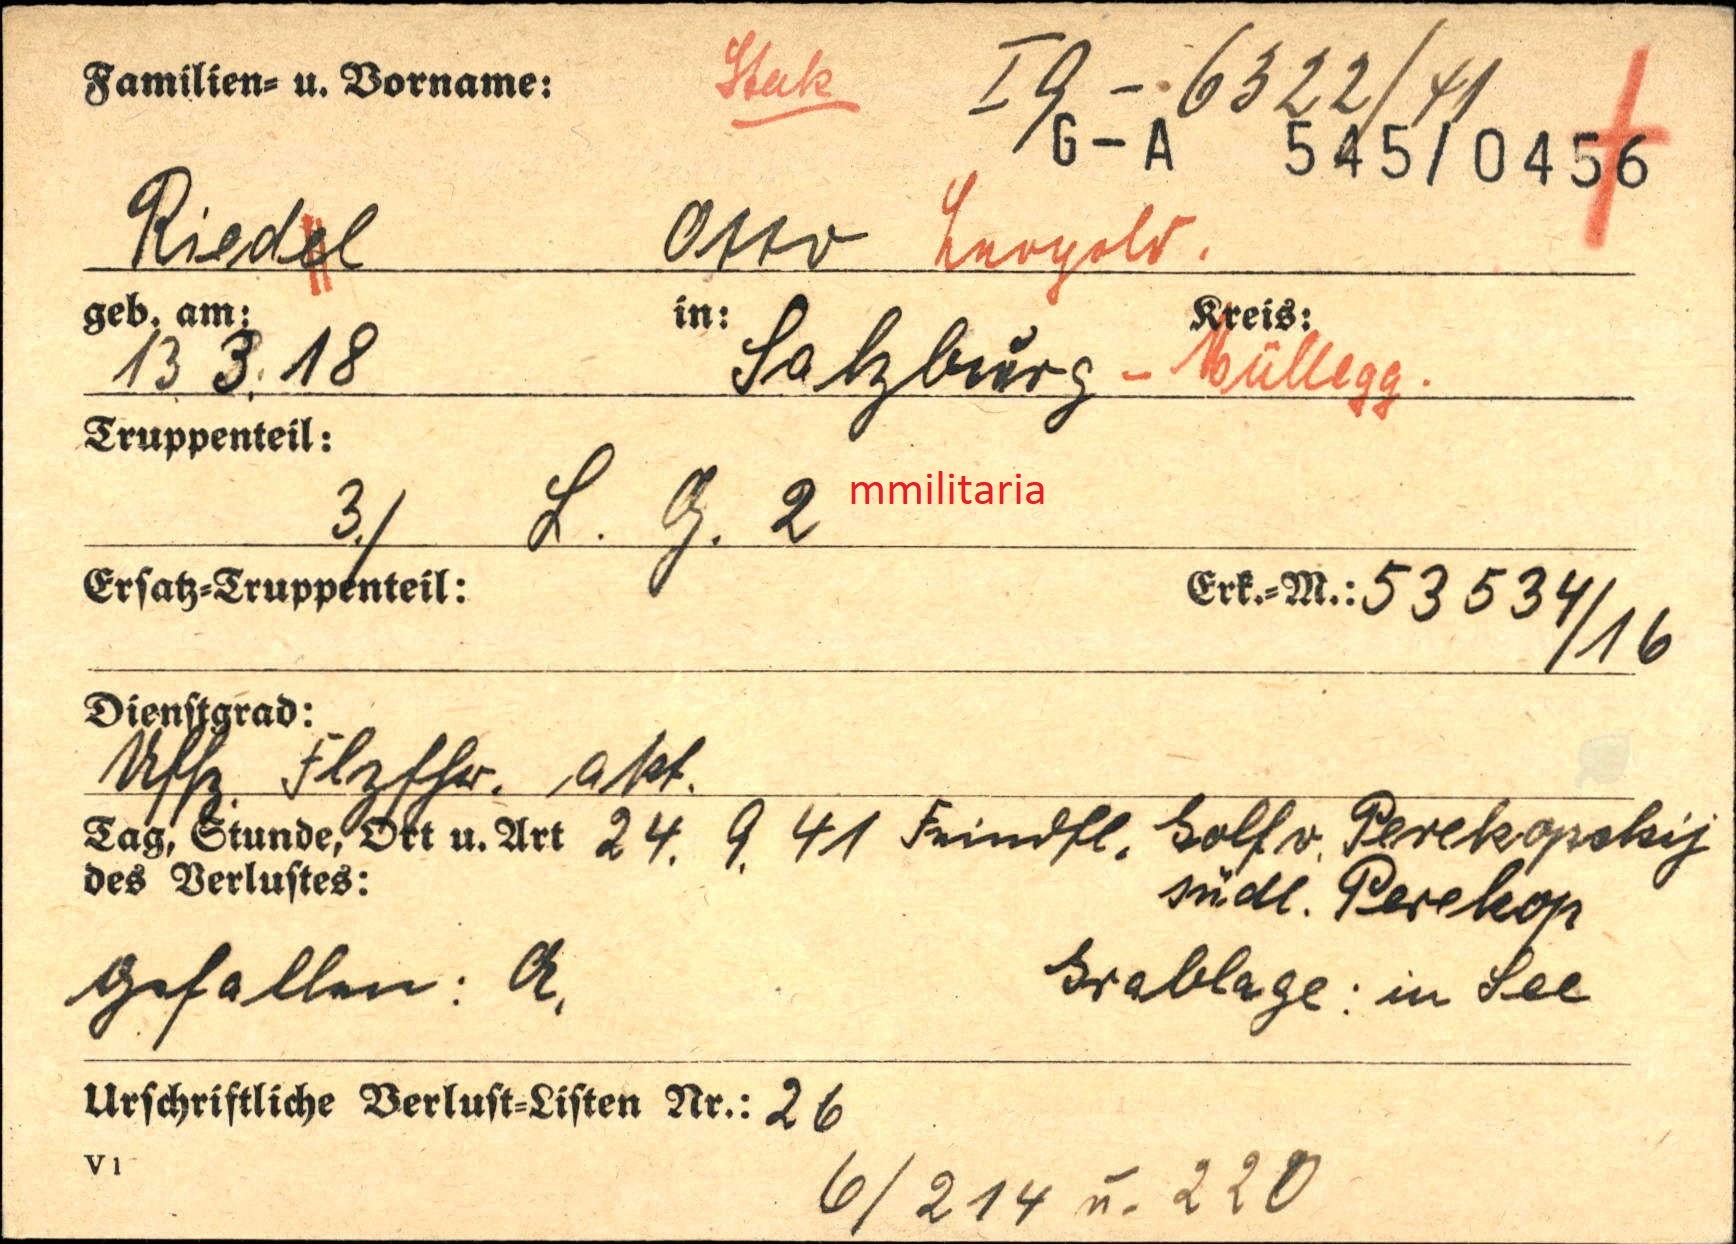 Familien- u. Vorname: Stak I g - 6322/41
G-A 545/0456
Riedel Otto Leopold.
geb. am: in: Kreis:
13 3. 18 Salzburg - Müllegg.
Truppenteil:
3./ L. G. 2 mmilitaria
Ersatz-Truppenteil: Erk.-M.: 53 534/16
Dienstgrad:
Uffz. Flzfhr. akt.
Tag, Stunde, Ort u. Art 24. 9. 41 Feindfl. Golf v. Perekopskij
des Verlustes: südl. Perekop
Gefallen: A. Grablage: in See
Urschriftliche Verlust-Listen Nr.: 26
V 1
6/214 u. 220